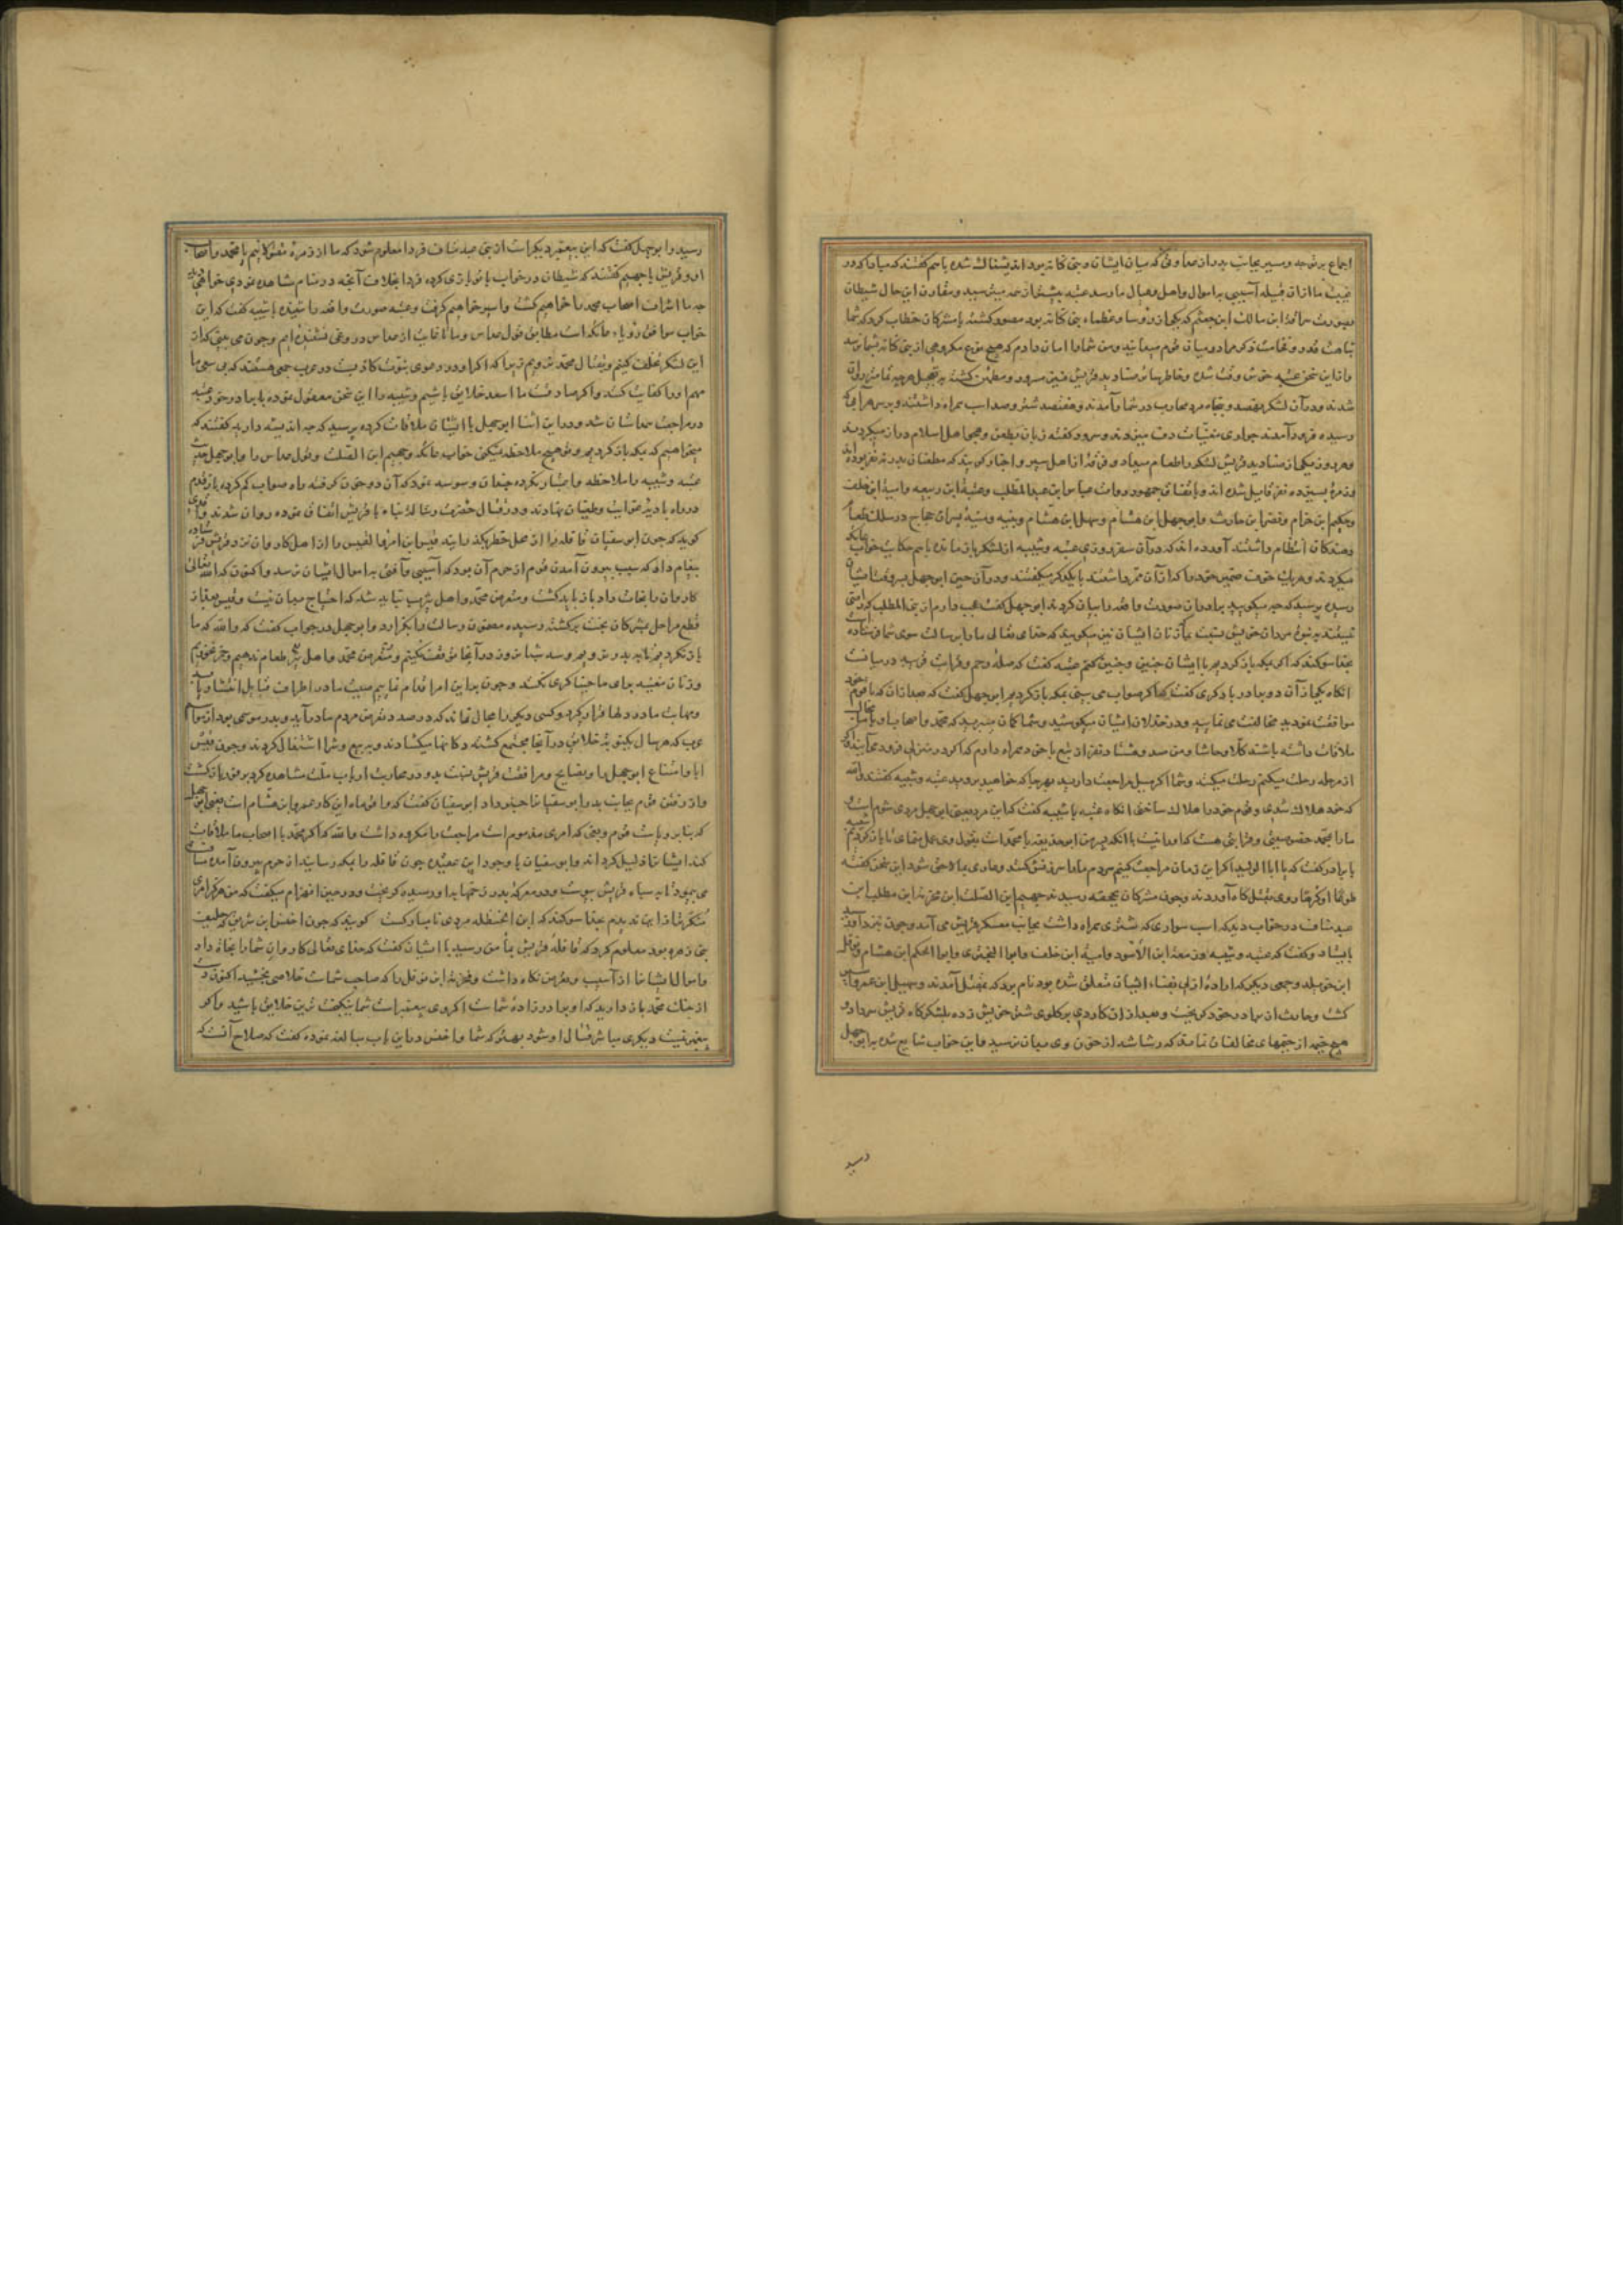 اجماع بر توجه و مسیر بجانب بدر از معاوفی که میان ایشان و بنی کنانه بود اندیشناک شده باهم گفتند که مبادا که در
غیبت ما ازان قبیله آسیبی به اموال و اهل و عیال ما رسد عتبه بیشتر از همه میترسید و مقارن این حال شیطان
بصورت سراقة ابن مالک ابن جعشم که یکی از رؤسا و عظماء بنی کنانه بود مصور گشته با مشرکان خطاب کرد که شما
نباهت قدر و مرا در میان قوم میدانید ومن شمارا امان دادم که هیچ نوع مکروهی از بنی کنانه بشما نرسد
و ازاین سخن عتبه خوش وقت شده و خاطرها صنادید قریش نیز مسرور و مطمئن گشته به تعجیل هرچه تمامتر روان
شدند و در آن لشکر نهصد و پنجاه مرد محارب در شمار آمدند و هفتصد شتر و صد اسب همراه داشتند و بر سر هر آبی که
رسیده فرود آمدند جواری مغنیات دف میزدند و سرود گفته زبان بطعن و هجو اهل اسلام دراز میکردند
و هر روز یکی از صنادید قریش لشکر را طعام میداد و فرقهٔ از اهل سیر و اخبار گویند که مطعمان بدر نه نفر بوده‌اند
و زمرهٔ بسیزده نفر قایل شده اند و باتفاق جمهور روات عباس ابن عبدالمطلب و عتبة ابن ربیعه و امیة ابن خلف
و حکیم ابن حزام و نضر ابن حارث و ابو جهل ابن هشام و سهل ابن هشام و نبیه و منبه پسران حجاج در سلک طعام
دهندگان انتظام داشتند آورده اند که در آن سفر روزی عتبه و شیبه از لشکر باز مانده باهم حکایت خواب عاتکه
میکردند و هریک خوف ضمیر خود را که ازان ممر داشتند با یکدیگر میگفتند و در آن حین ابو جهل بسروقت ایشان
رسیده پرسید که چه میگویید برادران صورت واقعه را بیان کردند ابو جهل گفت عجب دارم از بنی المطلب که راضی
نمیشوند به نبوت مردان خویش بنسبت بما که زنان ایشان نیز میگویند که خدای تعالی مارا برسالت سوی شما فرستاده است
بخدا سوگند که اگر بمکه باز گردیم با ایشان چنین و چنین کنم عتبه گفت که صلهٔ رحم و قرابت قریبه در میانست
انگاه یکی از آن دو برادر با دیگری گفت که اگر صواب می بینی بمکه باز گردیم ابو جهل گفت که بعد ازان که با قوم خود
موافقت نمودید مخالفت می نمایید و در خذلان ایشان میکوشید و شما گمان میبرید که محمد و اصحاب او با ما مجال
ملاقات داشته باشند کلا و حاشا ومن صد و هشتاد نفر از تبع با خود همراه دارم که اگر در منزلی فرود می آیم و اگر
از مرحله رحلت میکنم رحلت میکنند و شما اگر میل مراجعت دارید بهرجا که خواهید بروید عتبه و شیبه گفتند والله
که خود هلاک شدی و قوم خود را هلاک ساختی انگاه عتبه با شیبه گفت که این مرد یعنی ابو جهل مردی شوم است
مارا بمحمد خصوصیتی و قرابتی هست که اورا نیست با آنکه پسر من ابو حذیفه با محمد است بقول وی عمل منمای تا باز گردیم شیبه
با برادر گفت که یا ابا الولید اگر این زمان مراجعت کنیم مردم مارا سرزنش کنند و عاری بما لاحق شود این سخن گفته
طوعا او کرها روی بقتل گاه آوردند و چون مشرکان بجحفه رسیدند جهیم ابن الصلت ابن مخرمه ابن مطلب ابن
عبد مناف در خواب دید که اسب سواری که شتری همراه داشت بجانب معسکر قریش می آمد و چون نزدیک رسید
بایستاد و گفت که عتبه و شیبه و زمعة ابن الاسود و امیة ابن خلف و ابو البختری و ابو الحکم ابن هشام و نوفل
ابن خویلد و جمعی دیگر که ارادهٔ ازلی بفناء ایشان متعلق شده بود نام برد که بقتل آمدند و سهیل ابن عمرو اسیر
گشت و حارث از برادر خود گریخت و بعد ازان کاردی بر گلوی شتر خویش زده بلشکرگاه قریش سر داد و
هیچ خیمه از خیمهای مخالفان نماند که رشاشه از خون وی بدان نرسید و این خواب شایع شده به ابو جهل
رسید
رسید و ابو جهل گفت که این پیغمبر دیگر است از بنی عبد مناف فردا معلوم شود که ما از زمره مقتولانیم یا محمد و اصحاب
او و قریش با جهیم گفتند که شیطان در خواب با تو بازی کرده فردا بخلاف آنچه در منام مشاهده نموده‌ی خواهی دید
چه ما اشراف اصحاب محمد را خواهیم کشت و اسیر خواهیم گرفت و عتبه صورت واقعه را شنیده با شیبه گفت که این
خواب موافق رؤیاء عاتکه است مطابق قول عداس و ما تا غایت از عداس دروغی نشنیده‌ایم و چون می بینی که از
این لشکر تخلف کنیم و بقتال محمد نرویم زیرا که اگر او در دعوی نبوت کاذبست در عرب جمعی هستند که بی سعی ما
مهم اورا کفایت کنند و اگر صادقست ما اسعد خلایق باشیم و شیبه را این سخن معقول نموده با برادر خود عتبه
در مراجعت همداستان شد و در این اثنا ابو جهل با ایشان ملاقات کرده پرسید که چه اندیشه دارید گفتند که
میخواهیم که بمکه باز گردیم و تو هیچ ملاحظه نمیکنی خواب عاتکه و جهیم ابن الصلت و قول عداس را و ابو جهل
عتبه و شیبه را ملاحظه و اعتبار نکرده چندان وسوسه نمود که آن دو خون گرفته راه صواب گم کرده باز قدم
در راه بادیهٔ غوایت و طغیان نهادند و در قتال حضرت رسالة پناه با قریش اتفاق نموده روان شدند و آورده‌اند
گویند که چون ابو سفیان قافله را از محل خطر بگذرانید قیس ابن امرأ القیس را از اهل کاروان نزد قریش فرستاده
پیغام داد که سبب بیرون آمدن قوم از حرم آن بود که آسیبی و آفتی به اموال ایشان نرسد و اکنون که الله تعالی
کاروان را نجات داد باز باید گشت و متعرض محمد و اهل یثرب نباید شد که احتیاج بدان نیست و قیس بعد از
قطع مراحل بمشرکان پیوسته رسیده مضمون رسالت را بگزارد و ابو جهل در جواب گفت که والله که ما
باز نگردیم تا به بدر نرویم و سه شبانروز در آنجا توقف نکنیم و متعرض محمد و اهل یثرب طعام ندهیم و خمر نخوریم
وزنان مغنیه برای ما خنیاگری نکنند و چون بر این امر اقدام نماییم صیت ما در اطراف قبایل انتشار یابد
و مهابت ما در دلها قرار گیرد و کسی دیگر را مجال نماند که در صدد تعرض مردم ما در آید و بدر موسمی بود از مواسم
عرب که هر سال یک نوبه خلایق در آنجا مجتمع گشته دکانها میگشادند و به بیع و شرا اشتغال کردند و چون قیس
ابا و امتناع ابو جهل را و مرافقت قریش بنسبت بدو در محاربت ارباب ملت مشاهده کرد بر فور باز گشت
و از رفتن قوم بجانب بدر ابو سفیان را خبر داد ابو سفیان گفت که وا قوماه این کار عمرو ابن هشام است یعنی ابو جهل
که بنا بر ریاست قوم و بغی که امری مذموم است مراجعت را مکروه داشت والله که اگر محمد با اصحاب ما ملاقات
کند ایشان را ذلیل گرداند و ابو سفیان با وجود این عقیده چون قافله را بمکه رسانید از حرم بیرون آمده مسافت
می پیمود تا به سپاه قریش پیوست و در معرکهٔ بدر زخمها بدو رسیده گریخت و در حین انهزام میگفت که من هرگز امری
منکرتر از این ندیدم بخدا سوگند که ابن الحنظله مردی نامبارکست گویند که چون اخنس ابن شریق که حلیف
بنی زهره بود معلوم کرد که قافلهٔ قریش بمأمن رسید با ایشان گفت که خدای تعالی کاروان شمارا نجاة داد
و اموال ایشان را از آسیب و تعرض نگاه داشت و مخرمة ابن نوفل را که صاحب شماست خلاصی بخشید اکنون دست
از جنگ محمد باز دارید که او برادر زادهٔ شماست اگر وی پیغمبر است شما نیکبخت ترین خلایق باشید و اگر
پیغمبر نیست دیگری مباشر قتال او شود بهتر که شما و اخنس در این باب مبالغه نموده گفت که صلاح آنست که